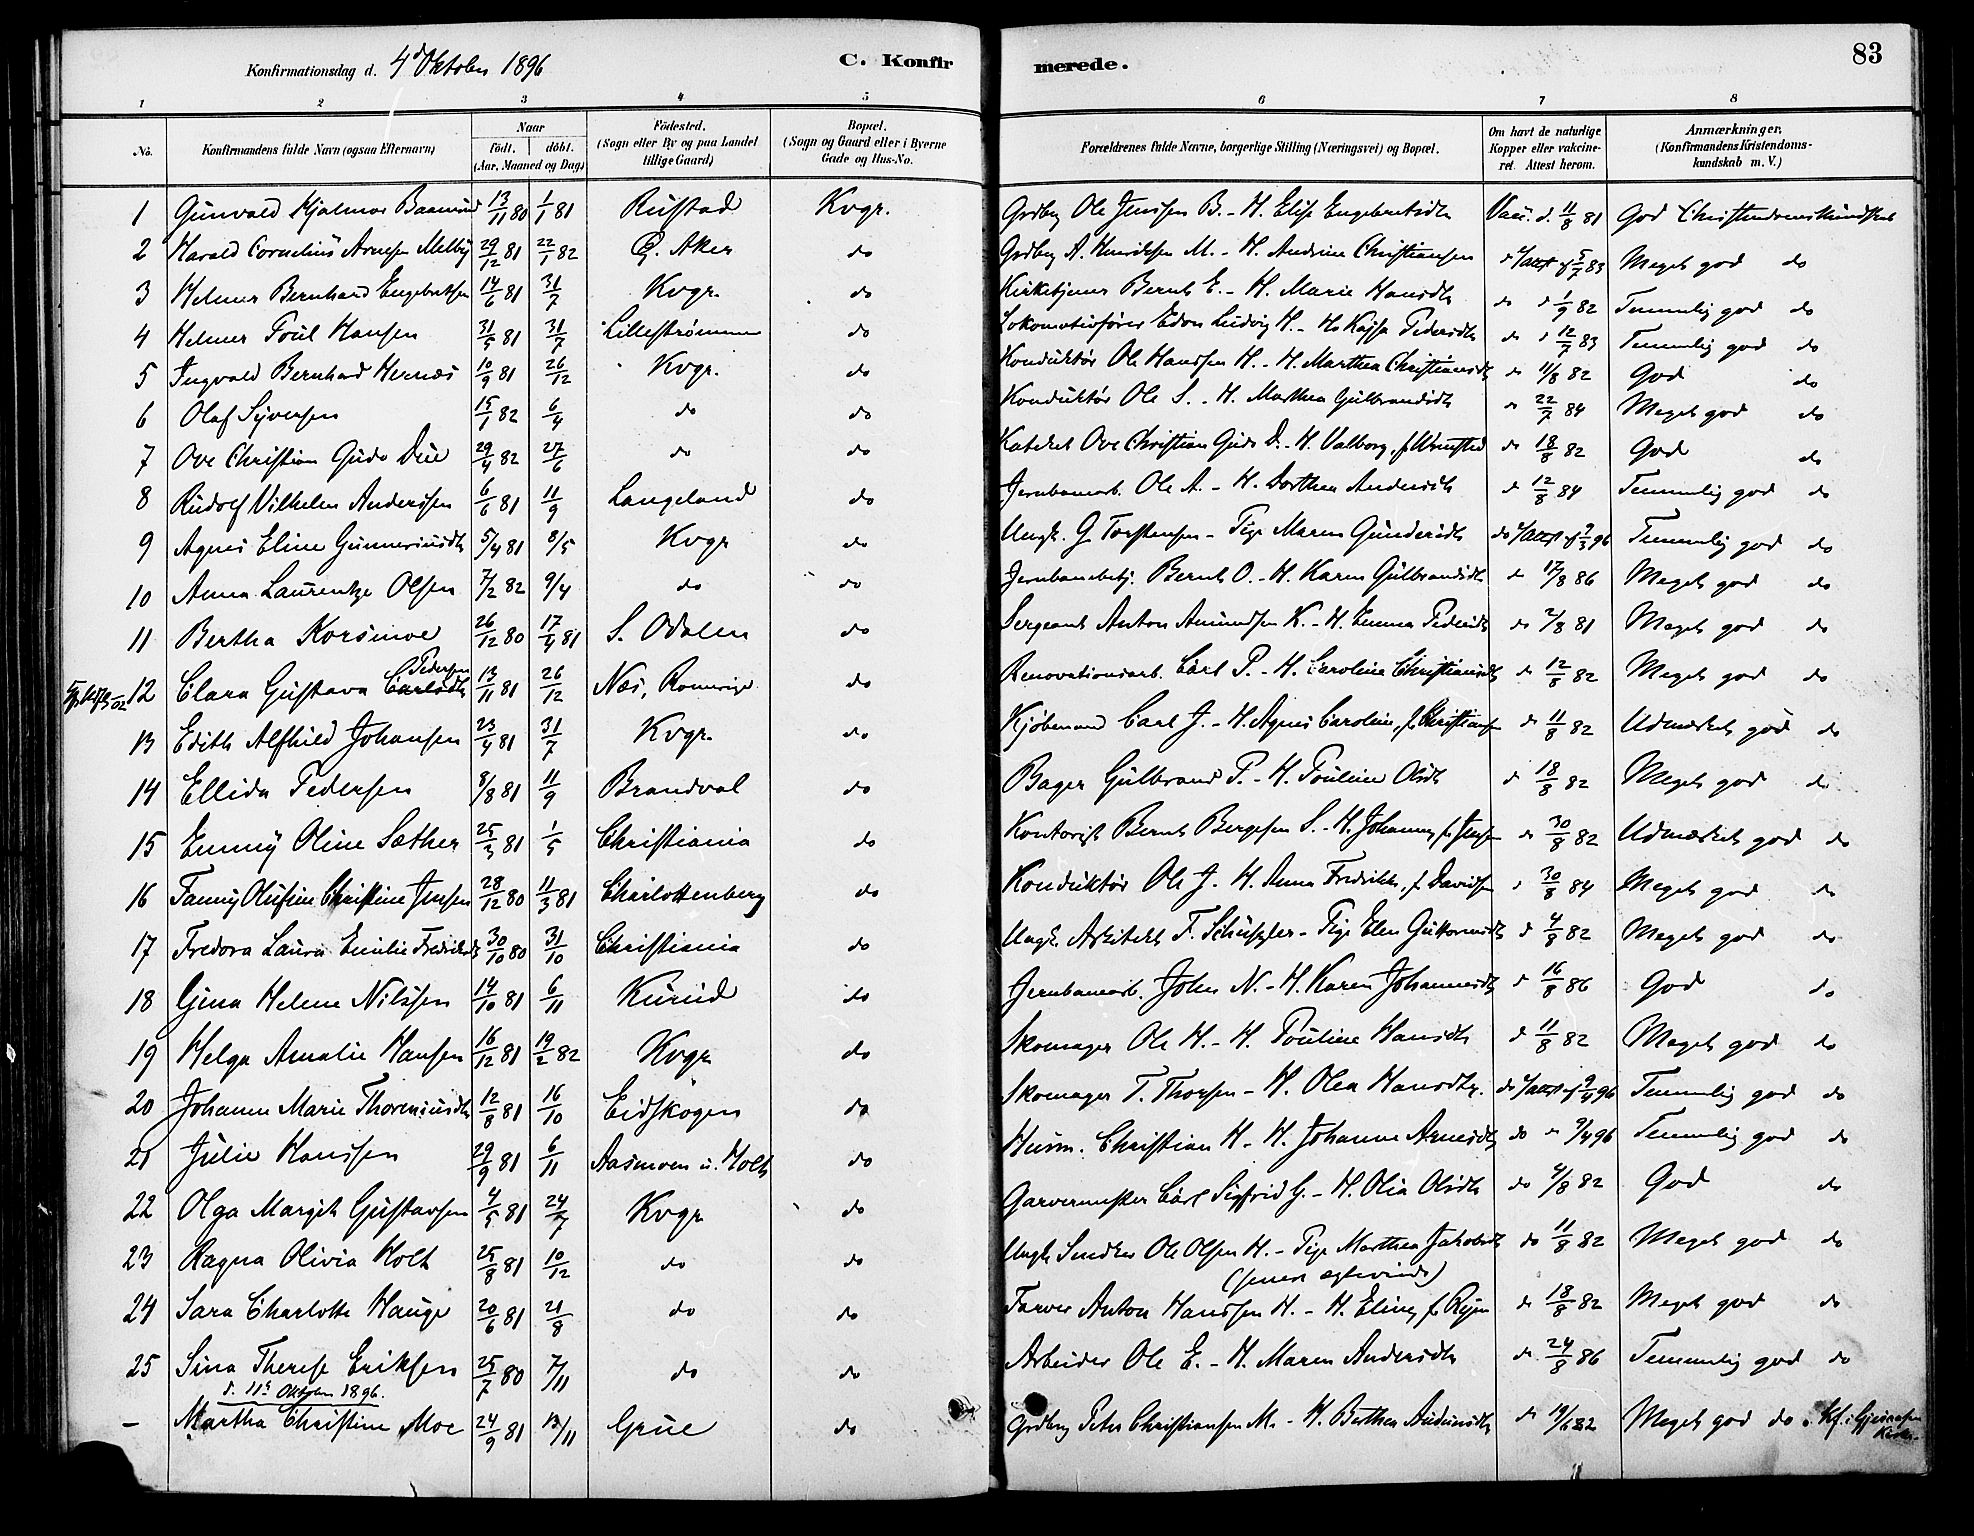 Konfirmationsdag d. 4de Oktober 1896 C. Konfirmerede. 83
1 2 3 4 5 6 7 8
No. Konfirmandens fulde Navn (ogsaa Efternavn) Naar födt. döbt. (Aar, Maaned og Dag) Födested. (Sogn eller By og paa Landet tillige Gaard) Bopæl. (Sogn og Gaard eller i Byerne Gade og Hus-No. Forældrenes fulde Navne, borgerlige Stilling (Næringsvei) og Bopæl. Om havt de naturlige Kopper eller vaccineret. Attest herom. Anmærkninger. (Konfirmandens Kristendomskundskab m. V.)
1 Gunvald Hjalmar Baanrud 13/11 80 1/1 81 Rustad Kvgr. Grdbrg Ole Jenssen B. - H. Elise Engebretsdtr Vacc. d. 11/8 81 God Christendomskundskab
2 Harald Cornelius Arnesen Melby 29/12 81 22/1 82 Ø. Aker do Grdbrg A. Henriksen M. - H. Andrine Christiansen Attest af 5/7 83 Meget god do
3 Helmer Bernhard Engebretsen 14/6 81 31/7 Kvgr. do Kirketjener Bernt E. - H. Marie Hansdtr do d 1/9 82 Temmelig god do
4 Helmer Poul Hansen 31/5 81 31/7 Lillestrømmen do Lokomotivfører Edvn Ludvig H. - H. Kajsa Pedersdtr do d 12/7 83 Temmelig god do
5 Ingvald Bernhard Hernæs 10/9 81 26/12 Kvgr. do Konduktør Ole Hanssen H. - H. Marthea Christiansdtr do 11/8 82 God do
6 Olaf Syversen 15/1 82 6/4 do do Konduktør Ole S. - H. Marthea Gulbrandsdtr do 22/7 84 Meget god do
7 Ove Christian Gude Due 29/4 82 27/6 do do Kateket Ove Christian Gude D. - H. Valborg, f. do 18/8 82 God do
8 Rudolf Vilhelm Anderssen 6/6 81 11/9 Langeland do Jernbanearb. Ole A. - H. Dorthea Andersdtr do 12/8 84 Temmelig god do
9 Agnes Eline Gunneriusdtr 5/4 81 8/5 Kvgr do Ungk. G. Torstensen - Pige Maren Gundersdtr do Attest af 2/3 96 Temmelig god do
10 Anna Laurentze Olsen 7/2 82 9/4 do do Jernbanebetj. Bernt O. - H. Karen Gulbrandsdtr do 17/8 86 Meget god do
11 Bertha Korsmoe 26/12 80 17/4 81 S. Odalen do Sergeant Anton Amundsen K. - H. Emma Pedersdtr do 2/8 81 Meget god do
12 Clara Gustava Carlsdtr Pedersen 13/11 81 26/12 Nes, Romerige do Renovationsarb. Carl P. - H. Caroline Christiansdtr do 12/8 82 Meget god do
13 Edith Alfhild Johansen 23/4 81 31/7 Kvgr. do Kjøbmand Carl J. - H. Agnes Caroline, f. Christiansen do 11/8 82 Udmærket god do
14 Ellida Pedersen 8/8 81 11/9 Brandval do Bager Gulbrand P. - H. Pouline Olsdtr d 18/8 82 Meget god do
15 Emmy Oline Sæther 25/3 81 1/5 Christiania do Kontorist Bernt Bergesen S. - H. Johanne, f. Jensen do 30/8 82 Udmærket god do
16 Fanny Olufine Christine Jensen 28/12 80 11/3 81 Charlottenberg do Konduktør Ole J. H. Anna Fredrikke, f. Davidsen d 30/8 84 Meget god do
17 Fredora Laura Emilie Fredriksdtr 30/10 80 31/10 Christiania do Ungk. Arkitekt F. Schüssler - Pige Elen Guttormsdtr d 4/8 82 Meget god do
18 Gina Helene Nilssen 14/10 81 6/11 Kurud do Jernbanearb. John N. - H. Karen Johannesdtr d 16/8 86 God do
19 Helga Amalie Hansen 16/12 81 19/2 82 Kvgr do Skomager Ole H. - H. Pouline Hansdtr d 11/8 82 Meget god do
20 Johanne Marie Thoreniusdtr 12/8 81 16/10 Eidskogen do Skomager T. Thorsen - H. Olea Hansdtr. do Attest af 9/4 96 Temmelig god do
21 Julie Hanssen 29/9 81 6/11 Aasmoen u. Holt do Husm. Christian H - H. Johanne Arnesdtr do 9/4 96 Temmelig god do
22 Olga Margith Gustavsen 4/5 81 24/7 Kvgr do Garvermester Carl Sigfrid G. - H. Olia Olsdtr do 4/8 82 God do
23 Ragna Olivia Holt 25/8 81 10/12 do do Ungk. Snedker Ole Olsen H. - Pige Marthea Jakobsdtr do 11/8 82 Meget god do
(senere egteviede)
24 Sara Charlotte Hauge 20/6 81 21/8 do do Farver Anton Hanssen H. - H. Eline, f. do 18/8 82 Meget god do
25 Sina Therese Eriksen 25/7 80 7/11 do do Arbeider Ole E. - H. Maren Andersdtr do 24/8 86 Temmelig god do
d. 11te Oktober 1896.
- Martha Christine Moe 24/9 81 13/11 Grue do Grdbrg Peter Christiansen M. - H. Berthea Audunsdtr do 19/6 82 Meget god do. Kf. i Gjesaasen Kirke.